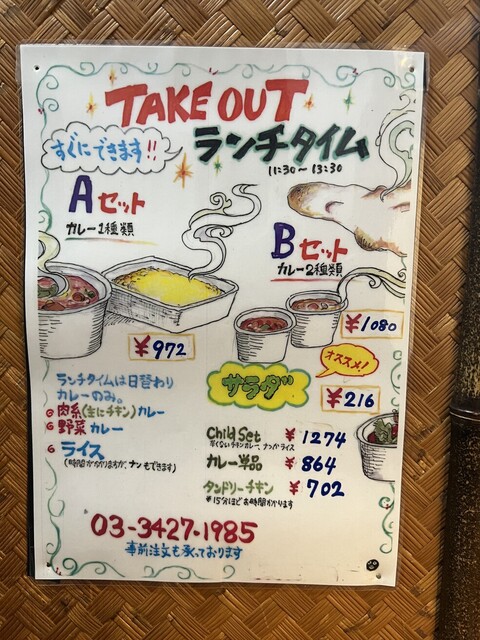 TAKE OUT
すぐにできます!!
ランチタイム
11:30〜13:30
Aセット
カレー1種類
¥972
Bセット
カレー2種類
¥1080
オススメ!
サラダ
¥216
ランチタイムは日替わり
カレーのみ。
肉系(主にチキン)カレー
野菜カレー
ライス
(時間かかりますが、ナンもできます)
Child Set ¥1274
辛くないチキンカレー、ナンかライス
カレー単品 ¥864
タンドリーチキン ¥702
*15分ほどお時間かかります
03-3427-1985
事前注文も承っております